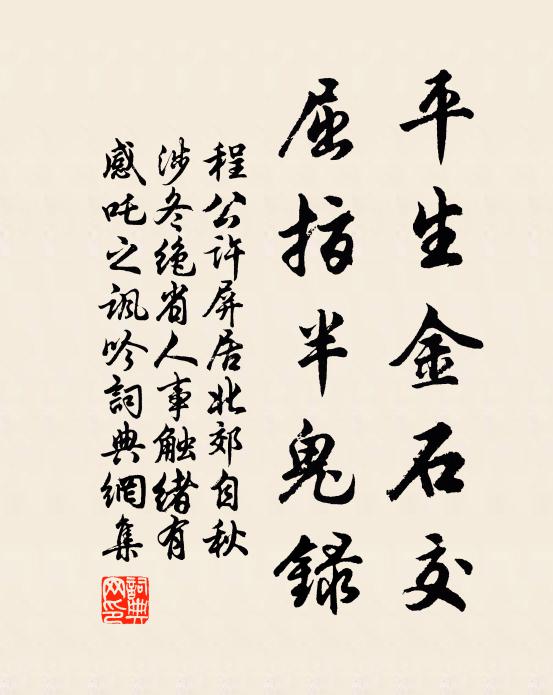 平生金石交
屈指半鬼録
程公许屏居北郊自秋
涉冬绝省人事触绪有
感吒之讽吟詞典網集
詞典
网印